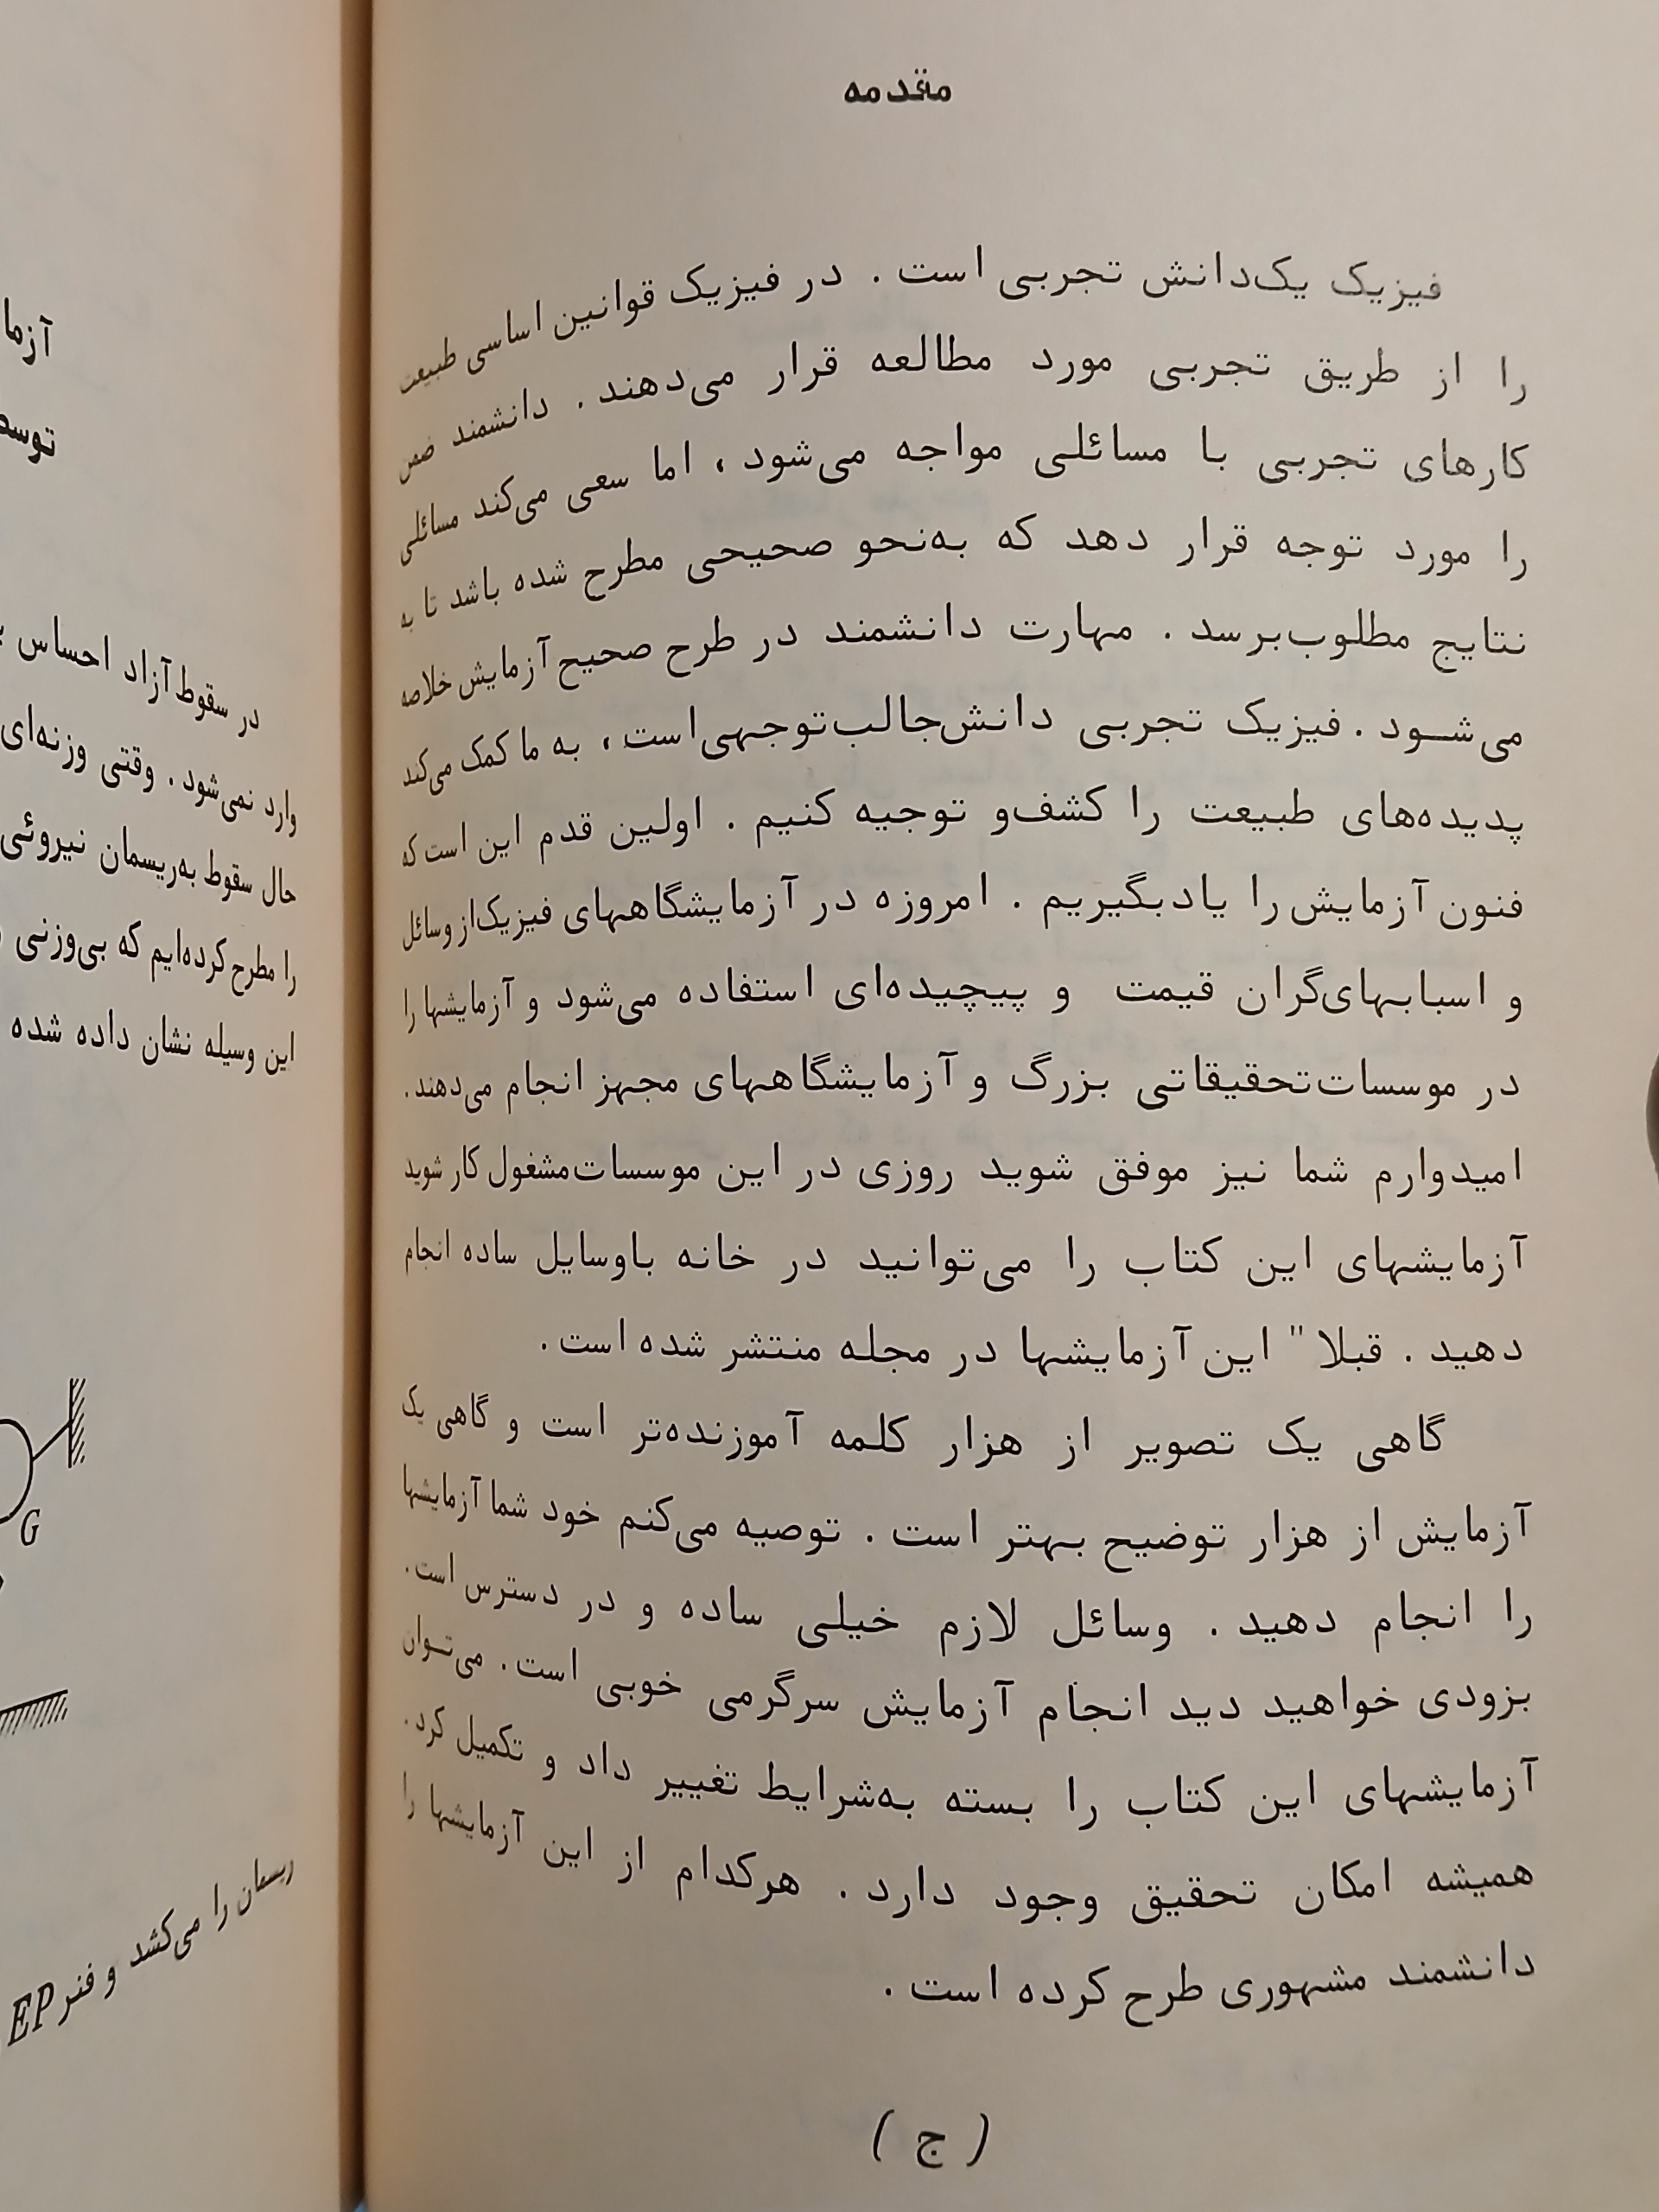 مقدمه
فیزیک یک‌دانش تجربی است . در فیزیک قوانین اساسی طبیعت
را از طریق تجربی مورد مطالعه قرار می‌دهند . دانشمند ضمن
کارهای تجربی با مسائلی مواجه می‌شود ، اما سعی می‌کند مسائلی
را مورد توجه قرار دهد که به‌نحو صحیحی مطرح شده باشد تا به
نتایج مطلوب‌برسد . مهارت دانشمند در طرح صحیح آزمایش خلاصه
می‌شود . فیزیک تجربی دانش‌جالب‌توجهی‌است ، به ما کمک می‌کند
پدیده‌های طبیعت را کشف‌و توجیه کنیم . اولین قدم این است که
فنون آزمایش را یادبگیریم . امروزه در آزمایشگاههای فیزیک‌از وسائل
و اسبابهای‌گران قیمت و پیچیده‌ای استفاده می‌شود و آزمایشها را
در موسسات‌تحقیقاتی بزرگ و آزمایشگاههای مجهز انجام می‌دهند .
امیدوارم شما نیز موفق شوید روزی در این موسسات‌مشغول کار شوید
آزمایشهای این کتاب را می‌توانید در خانه باوسایل ساده انجام
دهید . قبلا" این آزمایشها در مجله منتشر شده است .
گاهی یک تصویر از هزار کلمه آموزنده‌تر است و گاهی یک
آزمایش از هزار توضیح بهتر است . توصیه می‌کنم خود شما آزمایشها
را انجام دهید . وسائل لازم خیلی ساده و در دسترس است .
بزودی خواهید دید انجام آزمایش سرگرمی خوبی است . می‌توان
آزمایشهای این کتاب را بسته به‌شرایط تغییر داد و تکمیل کرد .
همیشه امکان تحقیق وجود دارد . هرکدام از این آزمایشها را
دانشمند مشهوری طرح کرده است .
( ج )
آزما
توسط
در سقوط آزاد احساس
وارد نمی‌شود . وقتی وزنه‌ای
حال سقوط به‌ریسمان نیروئی
را مطرح کرده‌ایم که بی‌وزنی
این وسیله نشان داده شده
G
ریسمان را می‌کشد و فنر EP